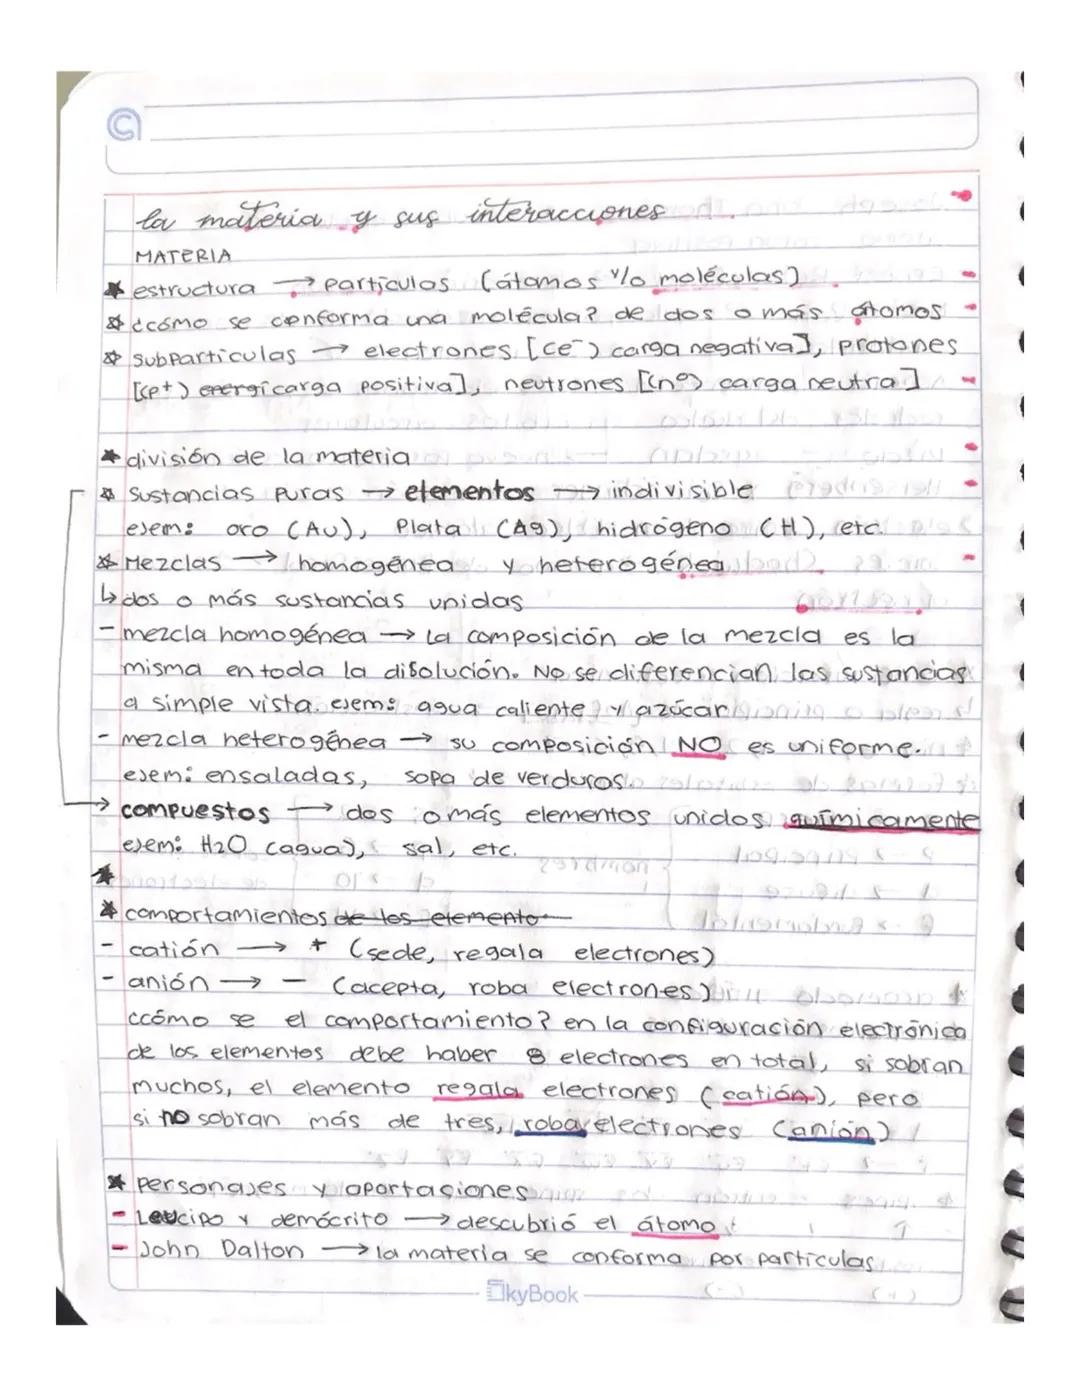 la materia y sus interacciones
MATERIA
estructura → partículas (átomos y/o moléculas)
¿cómo se conforma una molécula? de dos o más átomos
subpartículas → electrones [(e⁻) carga negativa], protones
[(p+) carga positiva], neutrones [(n°) carga neutra]
división de la materia
Sustancias puras → elementos → indivisible
ejem: oro (Au), Plata (Ag), hidrógeno (H), etc.
Mezclas → homogénea y heterogénea
↳ dos o más sustancias unidas
- mezcla homogénea → la composición de la mezcla es la
misma en toda la disolución. No se diferencian las sustancias
a simple vista. ejem: agua caliente y azúcar
- mezcla heterogénea → su composición NO es uniforme.
ejem: ensaladas, sopa de verduras
compuestos → dos o más elementos unidos químicamente
ejem: H2O (agua), sal, etc.
comportamientos de los elemento
- catión → + (sede, regala electrones)
- anión → - (acepta, roba electrones)
¿cómo se el comportamiento? en la configuración electrónica
de los elementos debe haber 8 electrones en total, si sobran
muchos, el elemento regala electrones (catión), pero
si no sobran más de tres, roba electrones (anión)
Personajes y aportaciones
- Leucipo y demócrito → descubrió el átomo
- John Dalton → la materia se conforma por partículas
SkyBook